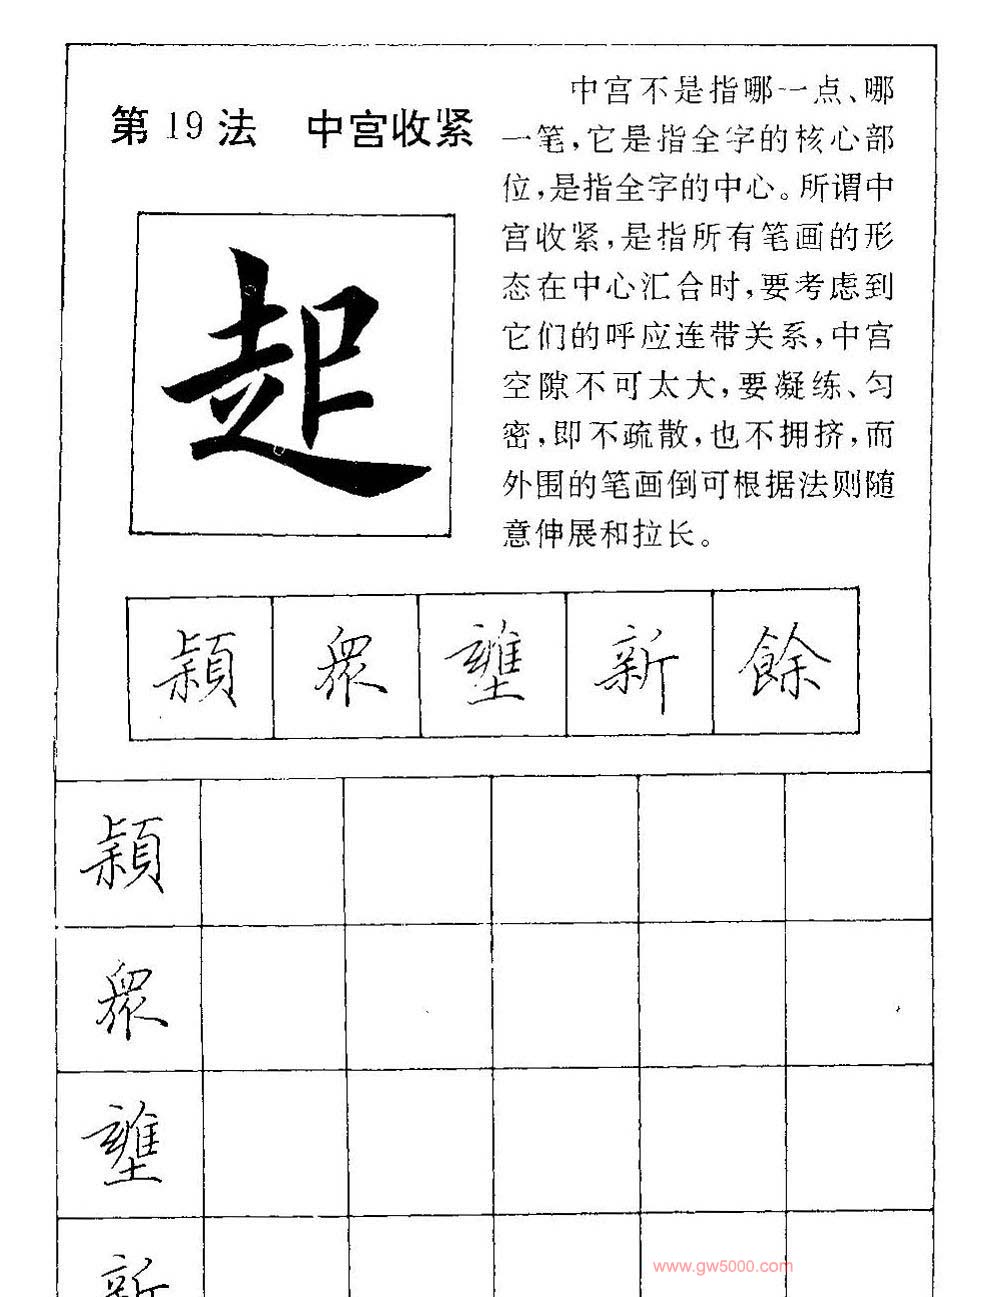 第19法 中宫收紧
中宫不是指哪一点、哪
一笔，它是指全字的核心部
位，是指全字的中心。所谓中
宫收紧，是指所有笔画的形
态在中心汇合时，要考虑到
它们的呼应连带关系，中宫
空隙不可太大，要凝练、匀
密，即不疏散，也不拥挤，而
外围的笔画倒可根据法则随
意伸展和拉长。
起
颕 眾 壅 新 餘
颕
眾
壅
新
www.gw5000.com